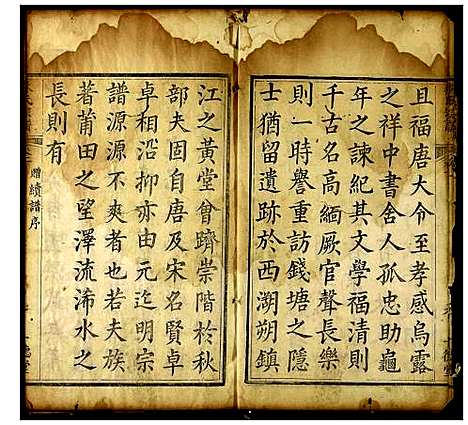 且福唐大令至孝感烏露
之祥中書舍人孤忠助龜
年之諫紀其文學福清則
千古名高緬厥官聲長樂
則一時譽重訪錢塘之隱
士猶留遺跡於西湖朔鎮
江之黃堂曾躋崇階於秋
部夫固自唐及宋名賢卓
卓相沿抑亦由元迄明宗
譜源源不爽者也若夫族
著莆田之望澤流浠水之
長則有
贈續譜序